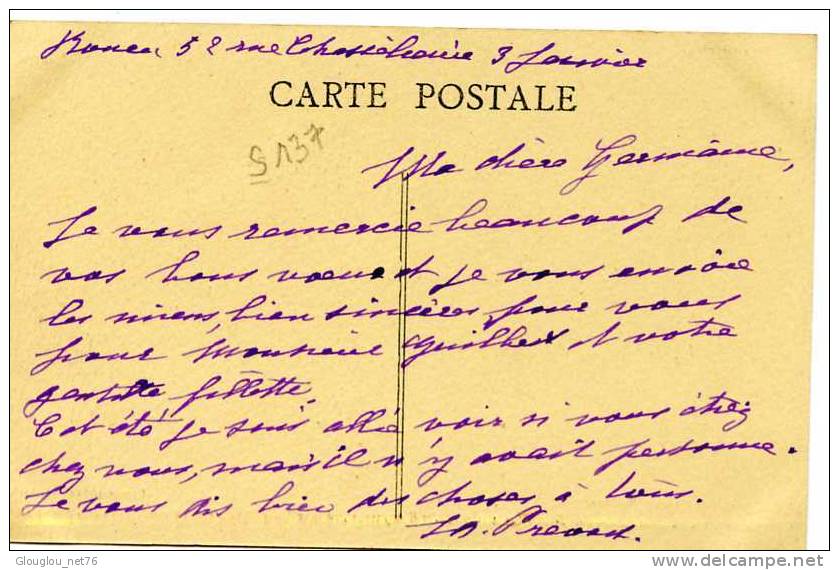 Rouen 52 rue Chasselièvre 3 Janvier
CARTE POSTALE
S 137
Ma chère Germaine,
Je vous remercie beaucoup de
vos bons vœux et je vous envoie
les miens, bien sincères pour vous
pour Monsieur Guilbert et votre
gentille fillette.
Cet été je suis allé voir si vous étiez
chez vous, mais il n'y avait personne.
Je vous dis bien des choses à tous.
Prevost.
Glouglou_net76
delcampe.net